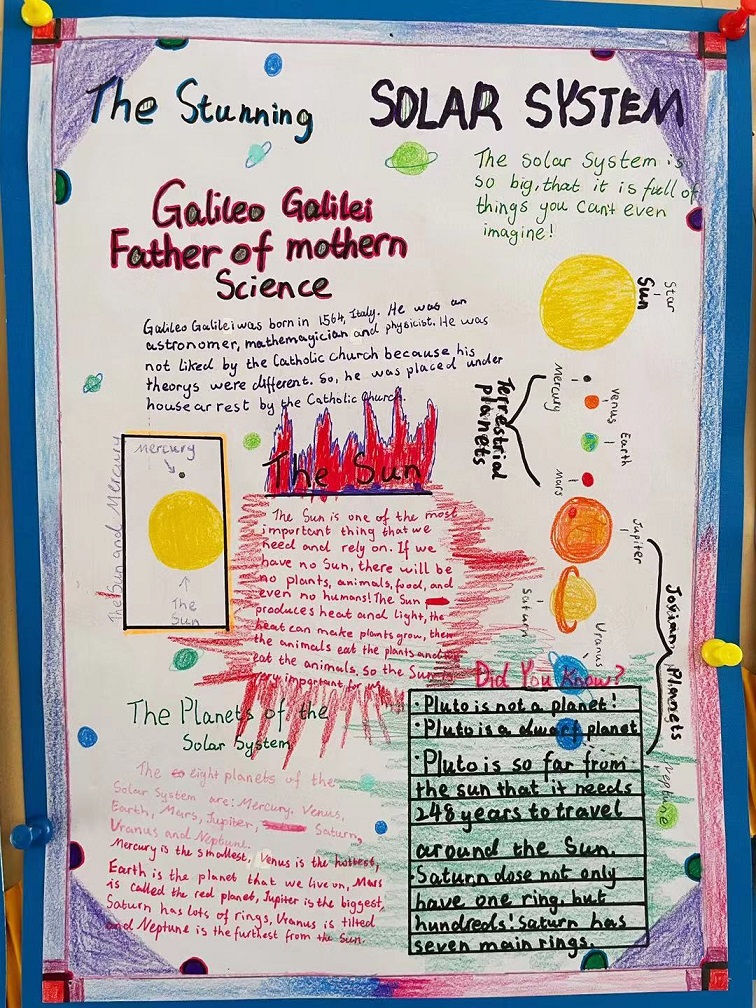 The Stunning SOLAR SYSTEM
The solar System is
so big, that it is full of
things you can't even
imagine!
Galileo Galilei
Father of mothern
Science
Galileo Galilei was born in 1564, Italy. He was an
astronomer, mathemagician and physicist. He was
not liked by the Catholic church because his
theorys were different. So, he was placed under
house arrest by the Catholic Church.
Star
Sun
Mercury
Venus
Earth
Mars
Terrestrial
planets
Jupiter
Saturn
Uranus
Neptune
Jovian Planets
The Sun and Mercury
Mercury
The
Sun
The Sun
The Sun is one of the most
important thing that we
need and rely on. If we
have no Sun, there will be
no plants, animals, food, and
even no humans! The Sun
produces heat and light, the
heat can make plants grow, then
the animals eat the plants and
eat the animals, so the Sun
very important for
The Planets of the
Solar System
The eight planets of the
Solar System are: Mercury, Venus,
Earth, Mars, Jupiter, Saturn,
Uranus and Neptune.
Mercury is the smallest, Venus is the hottest,
Earth is the planet that we live on, Mars
is called the red planet, Jupiter is the biggest,
Saturn has lots of rings, Uranus is tilted
and Neptune is the furthest from the Sun.
Did You Know?
· Pluto is not a planet!
· Pluto is a dwarf planet
· Pluto is so far from
the sun that it needs
248 years to travel
around the Sun.
· Saturn dose not only
have one ring, but
hundreds! Saturn has
seven main rings.